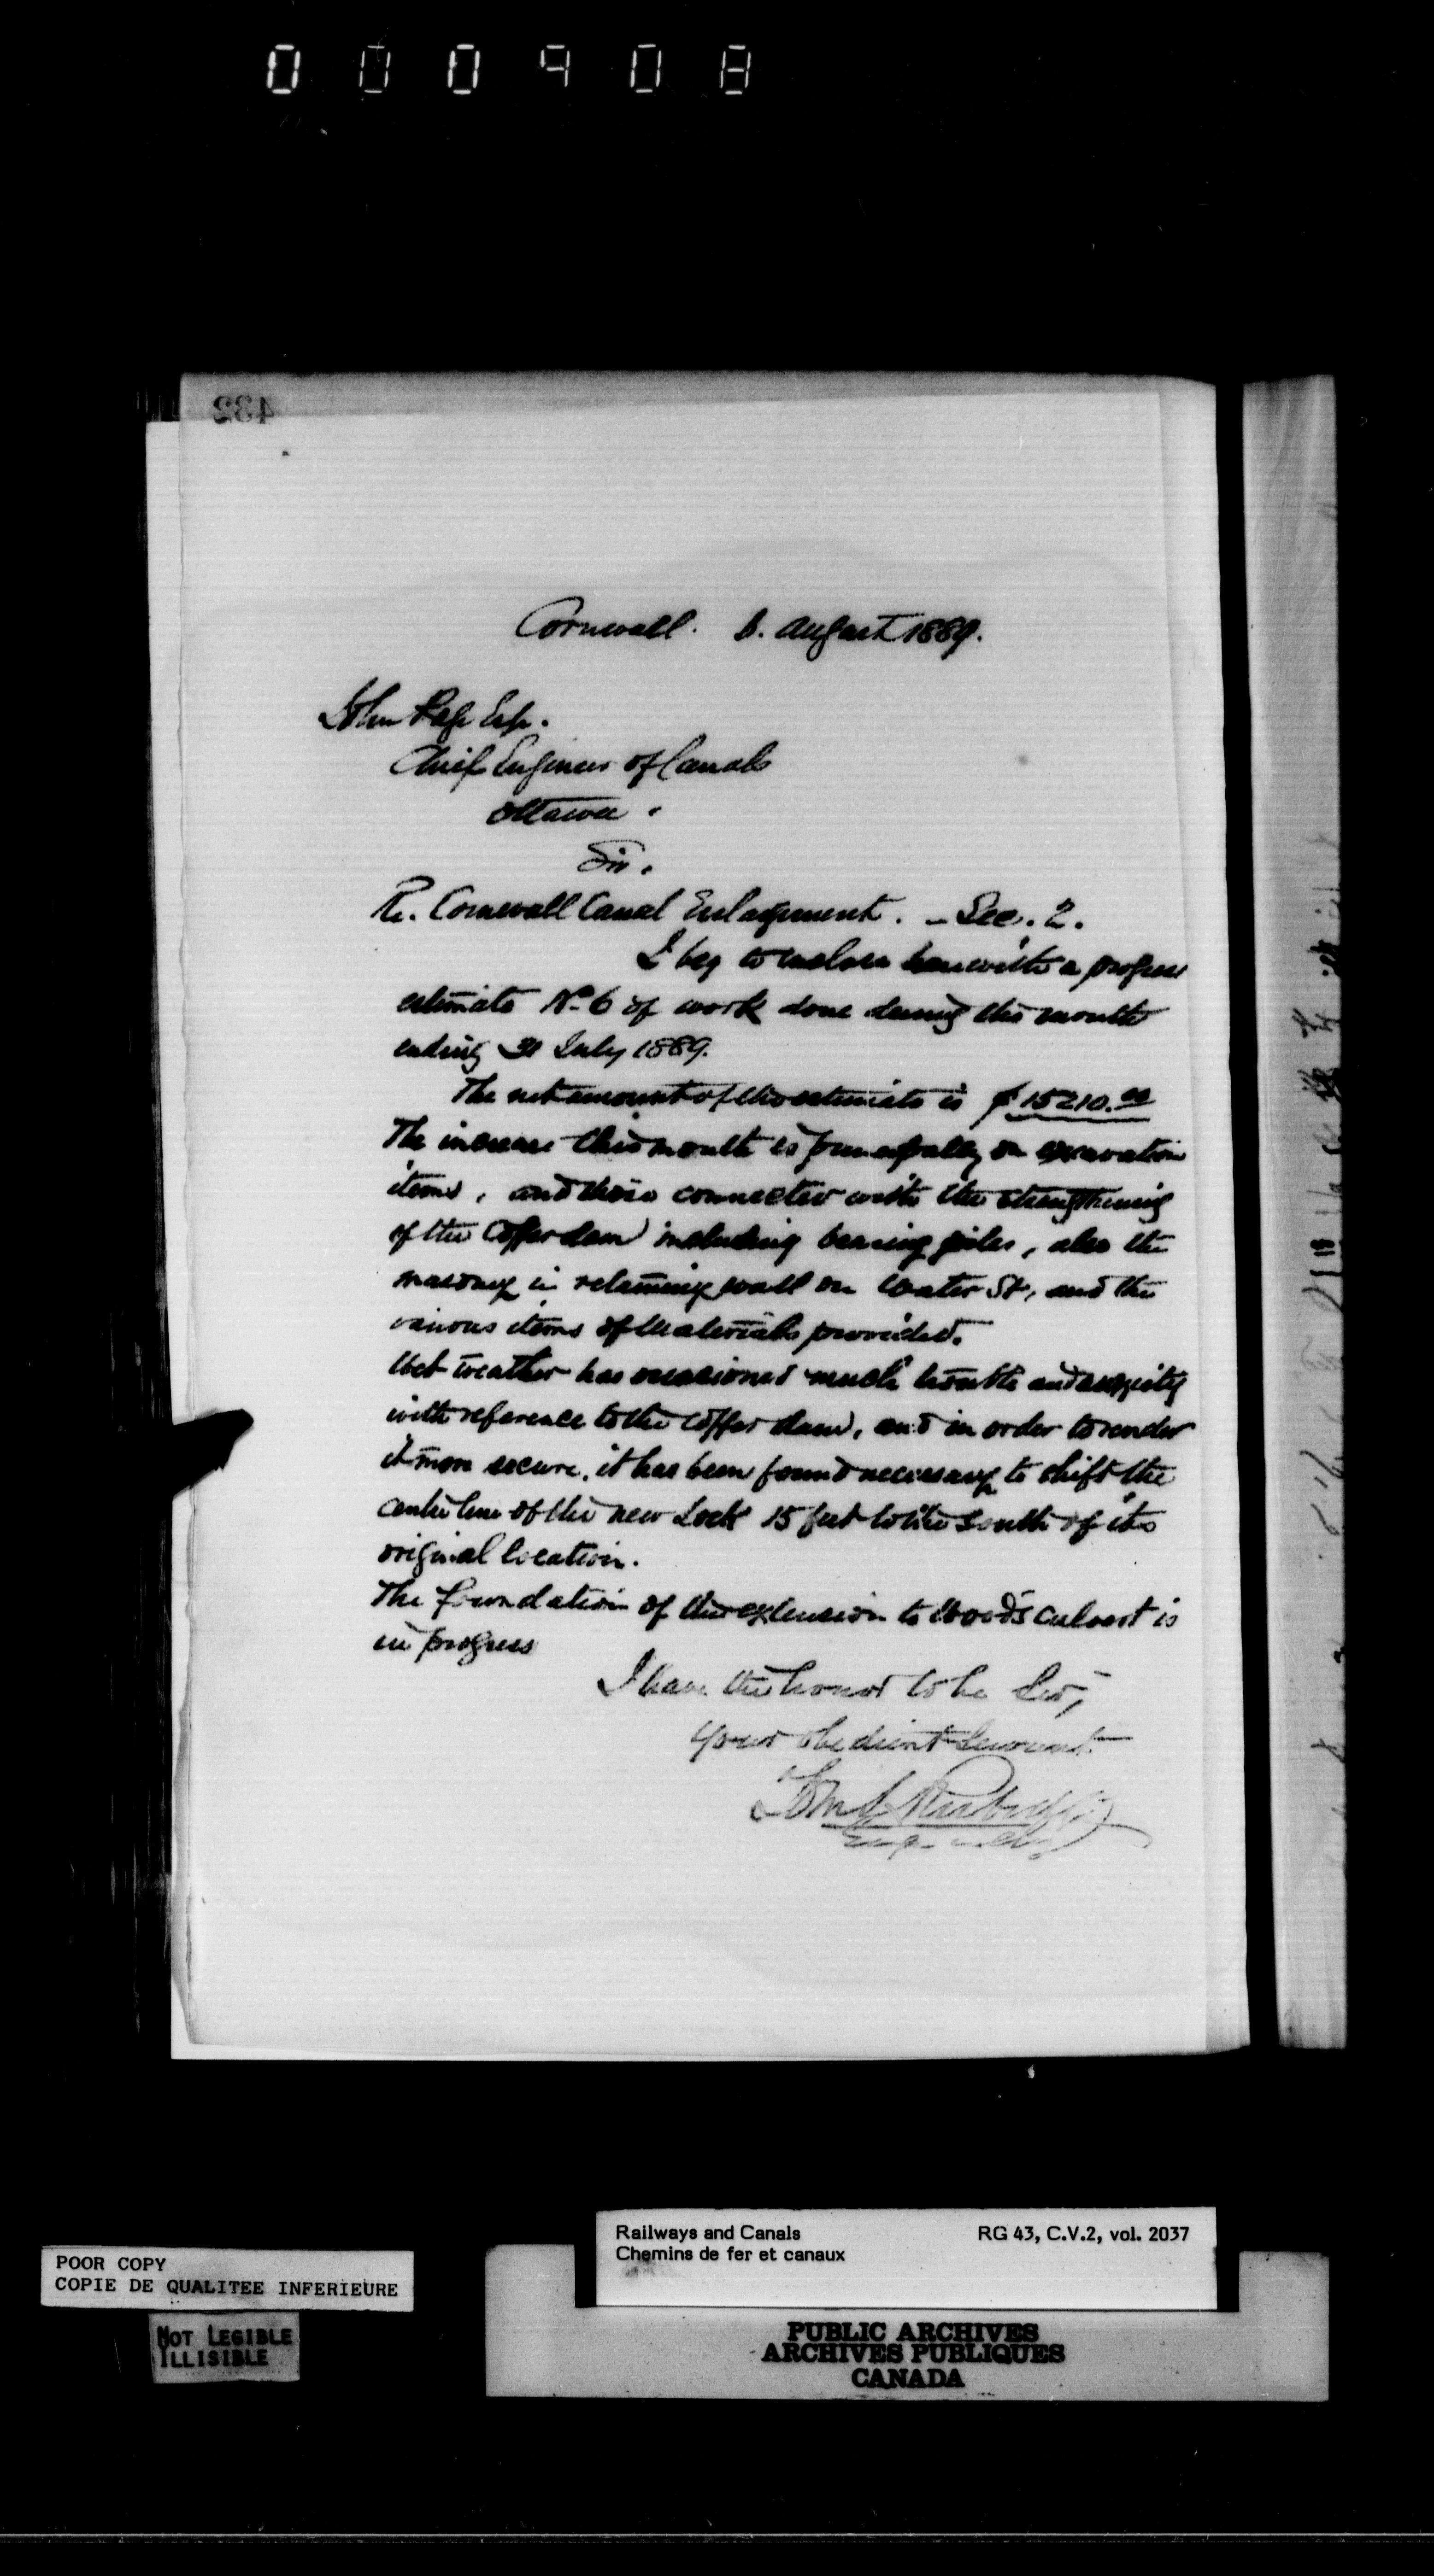 000908
432
Cornwall. 6. August 1889.
John Page Esq.
Chief Engineer of Canals
Ottawa.
Sir.
Re. Cornwall Canal Enlargement. - Sec. 2.
I beg to enclose herewith a progress
estimate No 6 of work done during the month
ending 31 July 1889.
The net amount of this estimate is $15210.00
The increase this month is principally on excavation
items, and those connected with the strengthening
of the Cofferdam including bearing piles, also the
masonry in retaining wall on Water St, and the
various items of Materials provided.
Wet weather has occasioned much trouble and anxiety
with reference to the Coffer dam, and in order to render
it more secure, it has been found necessary to shift the
centre line of the new Lock 15 feet to the South of its
original location.
The foundation of the extension to Wood's Culvert is
in progress
I have the honor to be Sir,
Your obedient Servant
Railways and Canals RG 43, C.V.2, vol. 2037
Chemins de fer et canaux
POOR COPY
COPIE DE QUALITEE INFERIEURE
NOT LEGIBLE
ILLISIBLE
PUBLIC ARCHIVES
ARCHIVES PUBLIQUES
CANADA